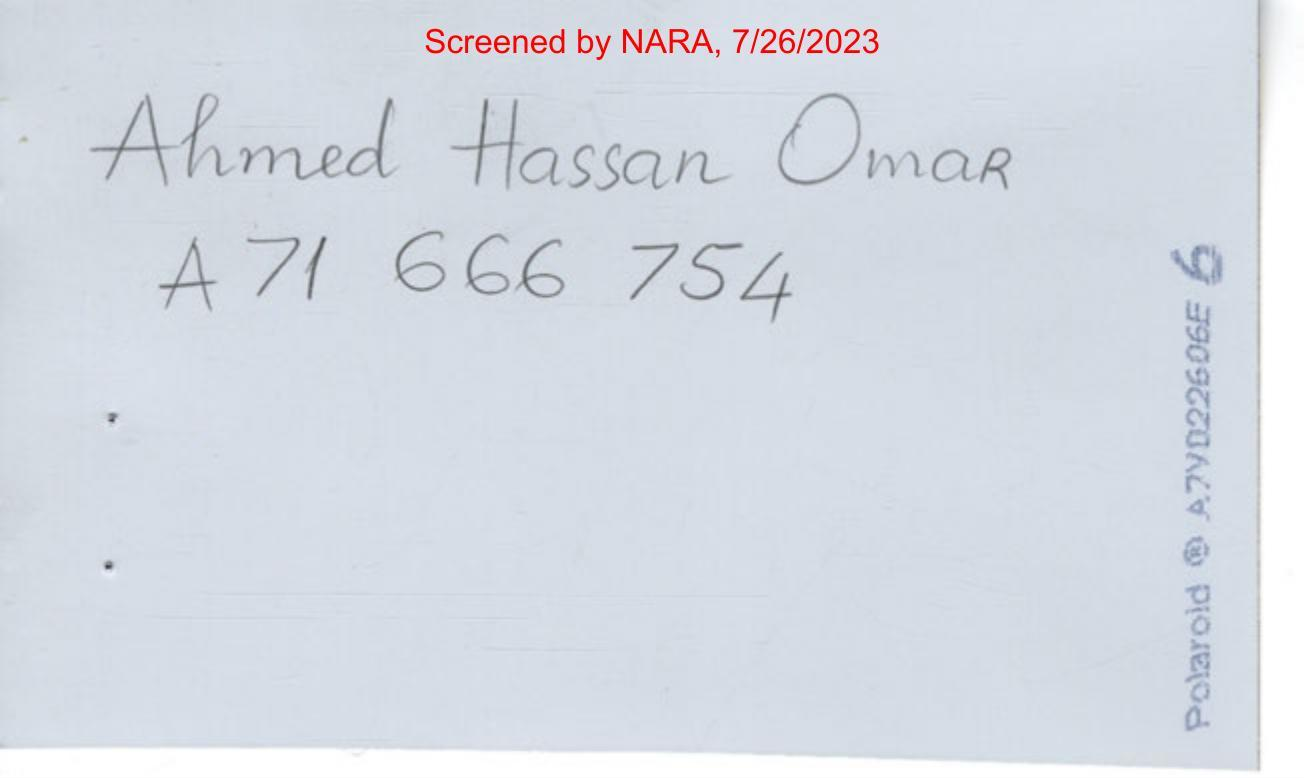 Screened by NARA, 7/26/2023
Ahmed Hassan Omar
A 71 666 754
Polaroid ® A7VD22606E 6